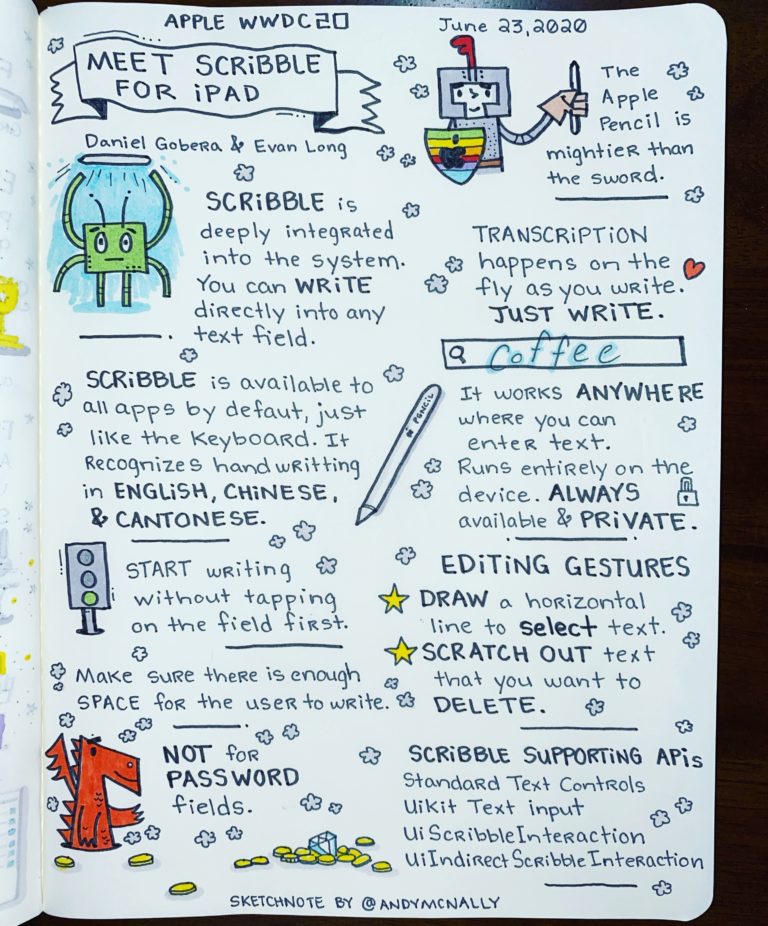 APPLE WWDC20
June 23, 2020
MEET SCRiBBLE
FOR iPAD
Daniel Gobera & Evan Long
The
Apple
Pencil is
mightier than
the sword.
SCRiBBLE is
deeply integrated
into the system.
You can WRiTE
directly into any
text field.
TRANSCRiPTiON
happens on the
fly as you write.
JUST WRiTE.
Coffee
SCRiBBLE is available to
all apps by defaut, just
like the Keyboard. It
Recognizes handwritting
in ENGLiSH, CHiNESE,
& CANTONESE.
PENCIL
It works ANYWHERE
where you can
enter text.
Runs entirely on the
device. ALWAYS
available & PRiVATE.
START writing
without tapping
on the field first.
Make sure there is enough
SPACE for the user to write.
EDiTiNG GESTURES
DRAW a horizontal
line to select text.
SCRATCH OUT text
that you want to
DELETE.
NOT for
PASSWORD
fields.
SCRiBBLE SUPPORTiNG APis
Standard Text Controls
UiKit Text input
UiScribbleInteraction
UiIndirectScribbleInteraction
SKETCHNOTE BY @ANDYMCNALLY